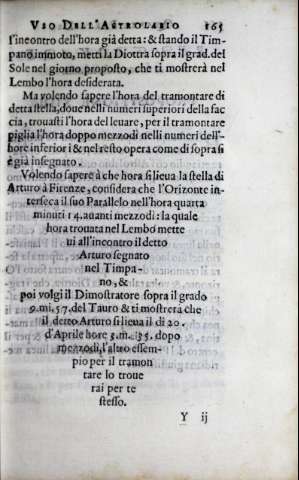 VSO DELL'ASTROLABIO 165
l'incontro dell'hora già detta: & stando il Tim-
pano immoto, metti la Diottra sopra il grad. del
Sole nel giorno proposto, che ti mostrerà nel
Lembo l'hora desiderata.
Ma volendo sapere l'hora del tramontare di
detta stella, doue nelli numeri superiori della fac
cia, trouasti l'hora del leuare, per il tramontare
piglia l'hora doppo mezzodi nelli numeri dell'-
hore inferiori & nel resto opera come di sopra si
è già insegnato.
Volendo sapere à che hora si lieua la stella di
Arturo à Firenze, considera che l'Orizonte in-
terseca il suo Parallelo nell'hora quarta
minuti 14. auanti mezzodi: la quale
hora trouata nel Lembo mette
ui all'incontro il detto
Arturo segnato
nel Timpa-
no, &
poi volgi il Dimostratore sopra il grado
9. mi. 57. del Tauro & ti mostrera che
il detto Arturo si lieua il di 20.
d'Aprile hore 5. m. 35. dopo
mezzodi, l'altro essem-
pio per il tramon
tare lo troue
rai per te
stesso.
Y ij